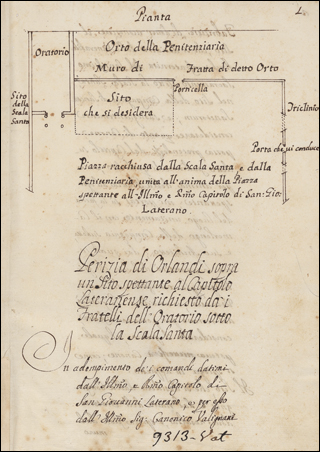 Pianta
2
Oratorio
Orto della Penitenziaria
Muro di Fratta di detto Orto
Porticella
Sito
della
Scala
Santa
Sito
che si desidera
Triclinio
Porta che vi conduce
Piazza racchiusa dalla Scala Santa e dalla
Penitenziaria, unita all'anima della Piazza
spettante all'Illmo e Rmo Capitolo di San Gio:
Laterano
Perizia di Orlandi sopra
un Sito spettante al Capitolo
Lateranense richiesto da i
Fratelli dell'Oratorio sotto
la Scala Santa
In adempimento de i comandi datimi
dall'Illmo e Rmo Capitolo di
San Giovanni Laterano, e per esso
dall'Illmo Sig. Canonico
9313-Vat